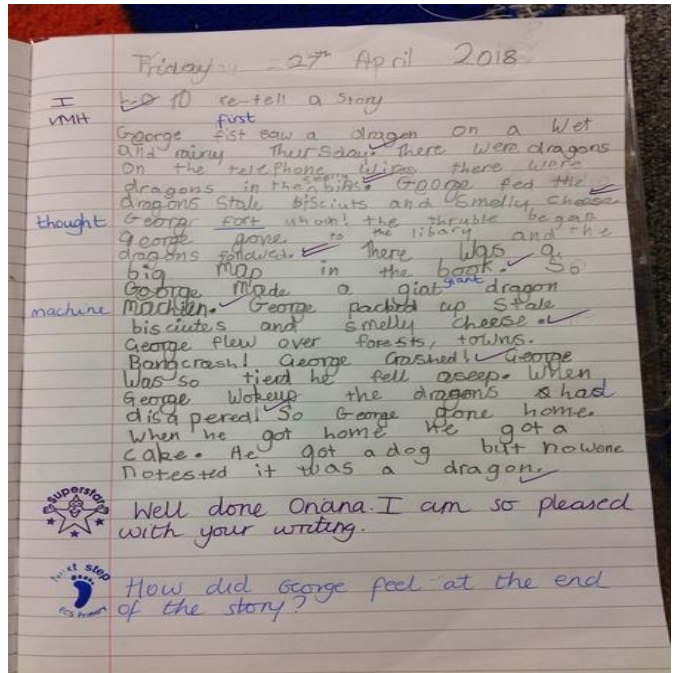 Friday 27th April 2018
I L-O TO re-tell a Story
VMH first
George fist saw a dragon on a Wet
and rainy Thursday. There were dragons
on the telephone wires there were
dragons in the bins. George fed the
dragons Stale bisciuts and smelly cheese
thought George fort the thruble began
George gone to the libary and the
dragons follows. There was a
big map in the book. So
giant
George Made a giat dragon
machine Machien. George packed up Stale
bisciutes and smelly cheese.
George flew over forests, towns.
Bangcrash! George Crashed! George
Was so tierd he fell aseep. When
George Wokeup the dragons had
disapered! So George gone home.
When he got home he got a
cake. He got a dog but nowone
notested it was a dragon.
Superstar
Well done Onana. I am so pleased
with your writing.
Next step
How did George feel at the end
of the story?